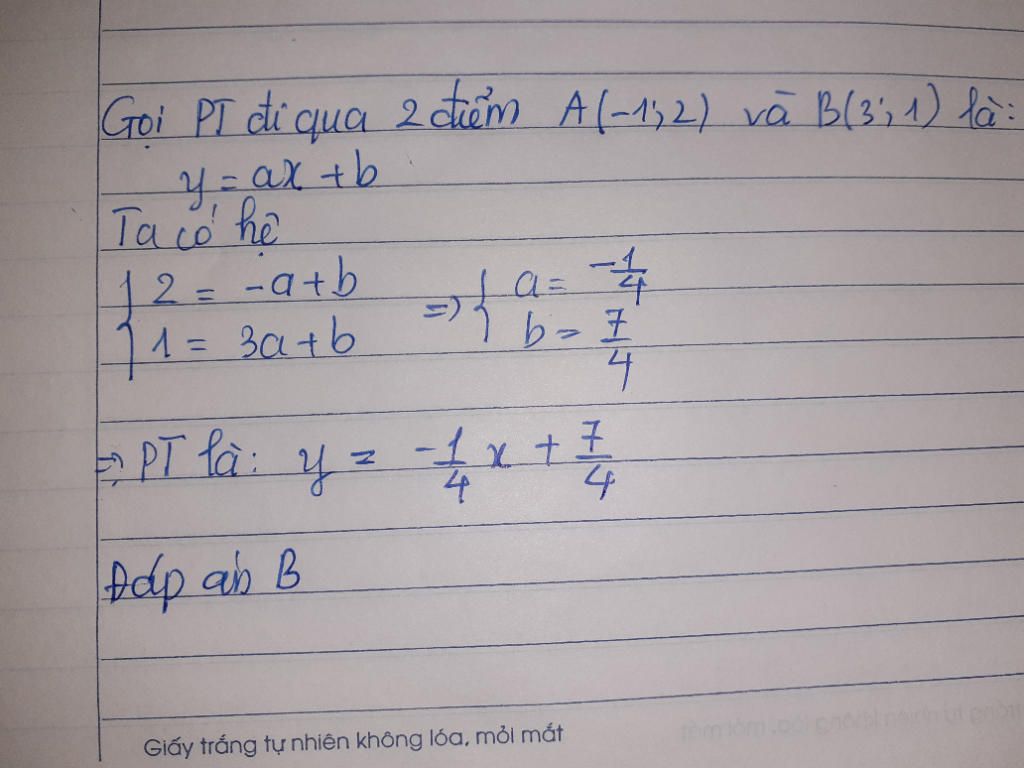 Gọi PT đi qua 2 điểm A(-1; 2) và B(3; 1) là:
y = ax + b
Ta có hệ
{ 2 = -a + b => { a = -1/4
{ 1 = 3a + b { b = 7/4
=> PT là: y = -1/4 x + 7/4
Đáp án B
Giấy trắng tự nhiên không lóa, mỏi mắt